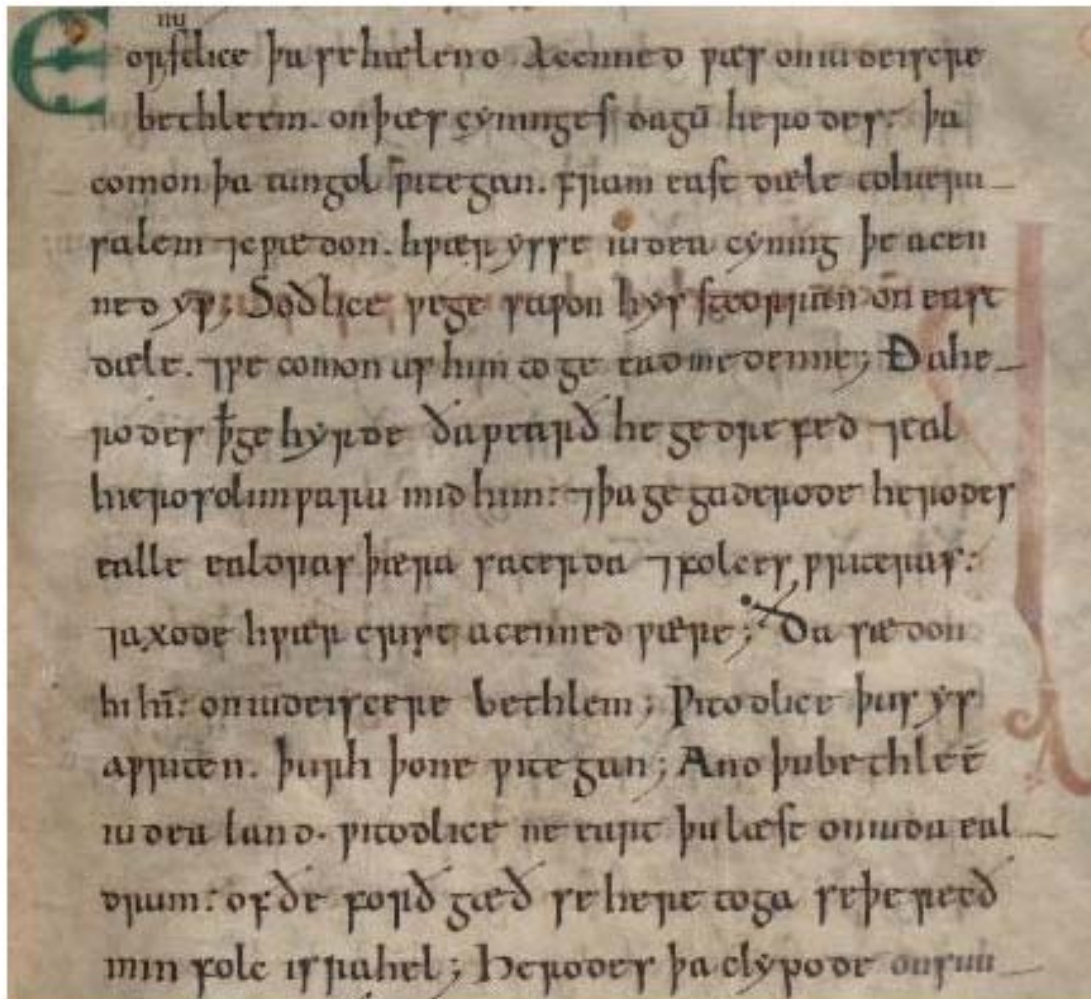 nu
Eorstlice þa se hælend Acenned ƿæs on iudeiscere
bethleem. on þæs cyninges dagū herodes. þa
comon þa tungol ƿitegan. fram east dæle to hieru
salem ⁊ cƿædon. hƿær ys se iudea cyning þe acen
ned ys; Soðlice ƿe gesaƿon hys steorran on east
dæle. ⁊ ƿe comon us him to ge eadmedenne; Ða he
rodes ꝥ ge hyrde ða ƿearð he gedrefed ⁊ eal
hierosolimƿaru mid him: ⁊ þa ge gaderode herodes
ealle ealdras þæra sacerda ⁊ folces ƿriteras:
⁊ axode hƿær crist acenned ƿære; Ða sædon
hi hī: on iudeiscere bethlem; Ƿitodlice þus ys
aƿriten. þurh þone ƿitegan; And þu bethleē
iudea land. ƿitodlice ne eart þu læst on iuda eal
drum: of ðe forð gæð se here toga se þe recð
min folc israhel; Herodes þa clypode on sun